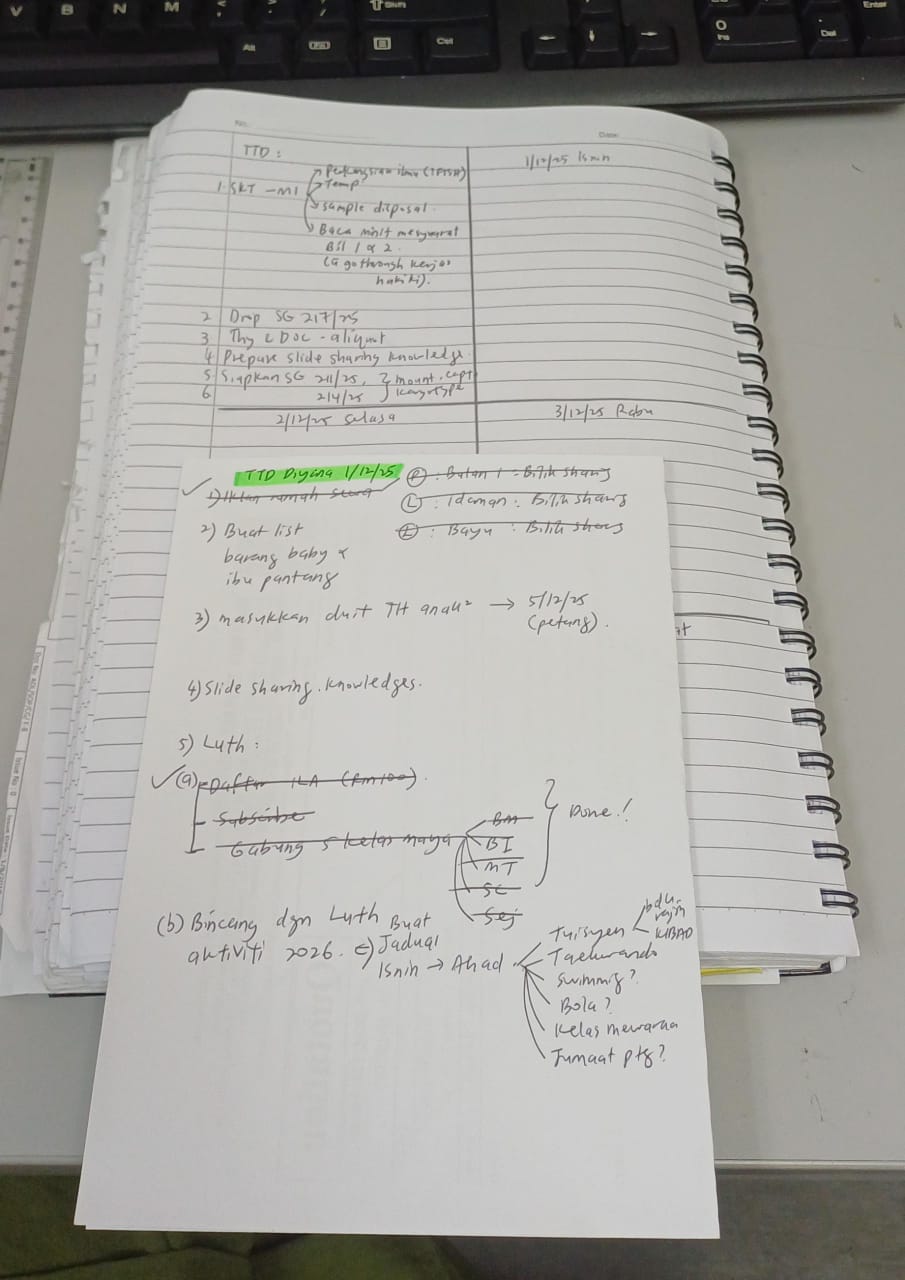 V B N M
Shift
Alt
Ctrl
0
Ins
Del
Enter
No:
Date:
TTD :
1/12/25 Isnin
Perkongsian ilmu
1 SKT - M1
Temp
sample disposal.
Baca minit mesyuarat
Bil 1 & 2.
(& go through kerja
hakiki).
2 Drop SG 217/25
3 Thy & DOC - aliquot
4 Prepare slide sharing knowledge.
5 Siapkan SG 211/25, } mount, capt
6 214/25 } karyotype
2/12/25 Selasa
3/12/25 Rabu
TTD Diyana 1/12/25
1) Iklan rumah sewa
: Balan 1 - Bilik shary
(L) : Idaman : Bilik shary
: Bayu : Bilik shary
2) Buat list
barang baby &
ibu pantang
3) masukkan duit TH anak² → 5/12/25
(petang).
at
4) Slide sharing. knowledges.
5) Luth :
(a) Daftar ILA (RM100).
Subscribe
Gabung 5 kelas maya
BM
BI
MT
SC
Sej
Done!
(b) Bincang dgn Luth
aktiviti 2026.
c) Buat
Jadual
Isnin → Ahad
Tuisyen
KIBAD
Taekwando
Swimming?
Bola?
Kelas mewarna
Jumaat ptg?